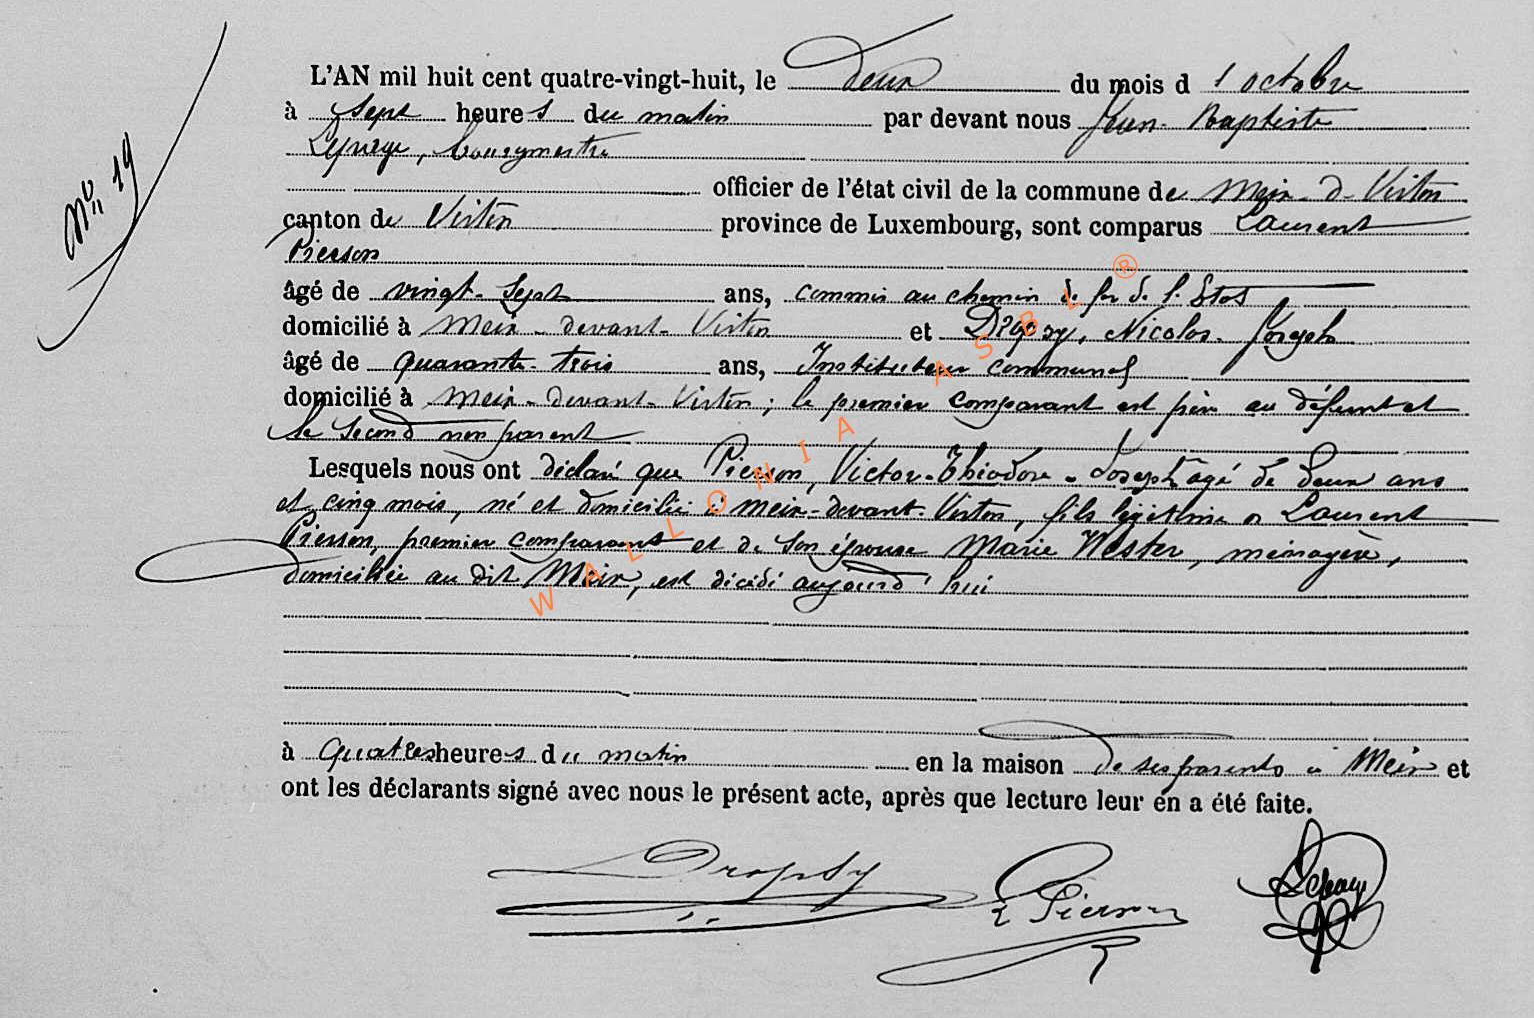 N° 19
L'AN mil huit cent quatre-vingt-huit, le deux du mois d'octobre
à sept heures du matin par devant nous Jean-Baptiste
Lepage, bourgmestre
officier de l'état civil de la commune de Meix-d-Virton
canton de Virton province de Luxembourg, sont comparus Laurent
Pierson
âgé de vingt-sept ans, commis au chemin de fer de l'Etat
domicilié à Meix-devant-Virton et Dropsy, Nicolas-Joseph
âgé de quarante-trois ans, Instituteur communal
domicilié à Meix-devant-Virton; le premier comparant est père au défunt et
le second non parent
Lesquels nous ont déclaré que Pierson, Victor-Théodore-Joseph âgé de deux ans
et cinq mois, né et domicilié à Meix-devant-Virton, fils légitime de Laurent
Pierson, premier comparant et de son épouse Marie Wester, ménagère,
domiciliée au dit Meix, est décédé aujourd'hui
à quatre heures du matin en la maison de ses parents à Meix et
ont les déclarants signé avec nous le présent acte, après que lecture leur en a été faite.
Dropsy L Pierson Lepage
WALLONIA ASBL ®